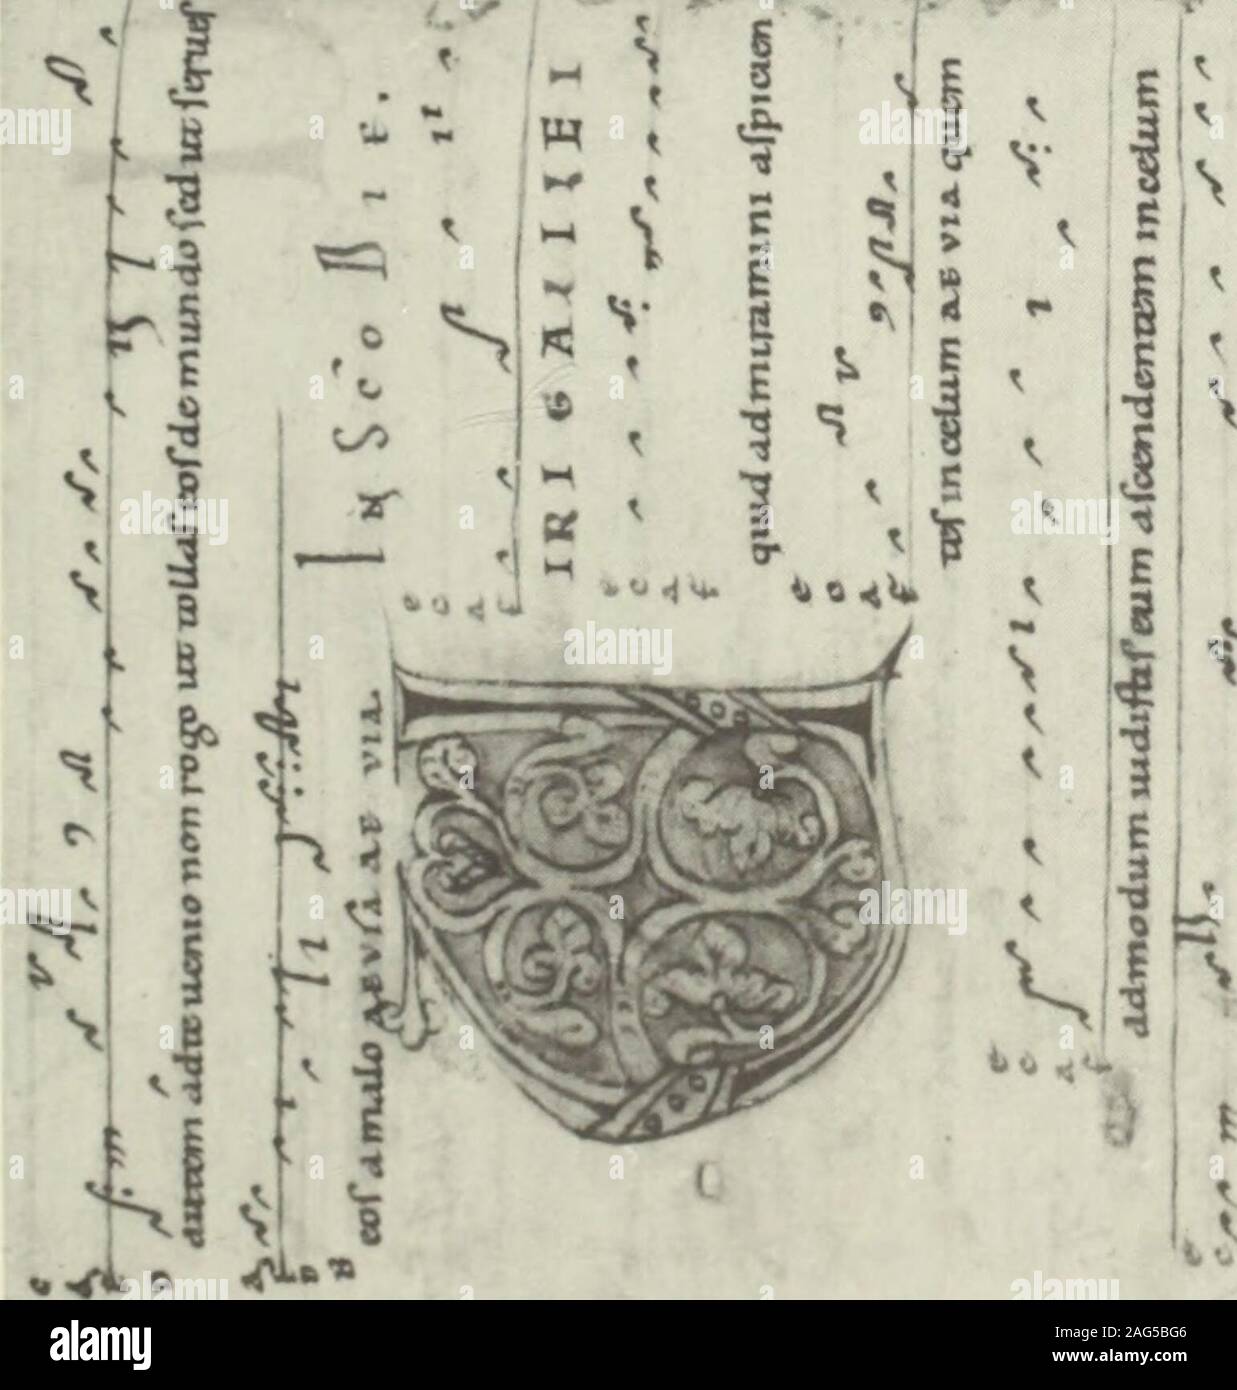 autem adte uenio non rogo ut tollaſ eoſ de mundo ſed ut ſerueſ
eoſ amalo AEVIA AE VIA. IN SCO DIE.
VIRI GALILEI
quid admiramini aſpicien
teſ incelum AE VIA quem
admodum uidiſtiſ eum aſcendentem incelum
alamy
2AG5BG6
www.alamy.com